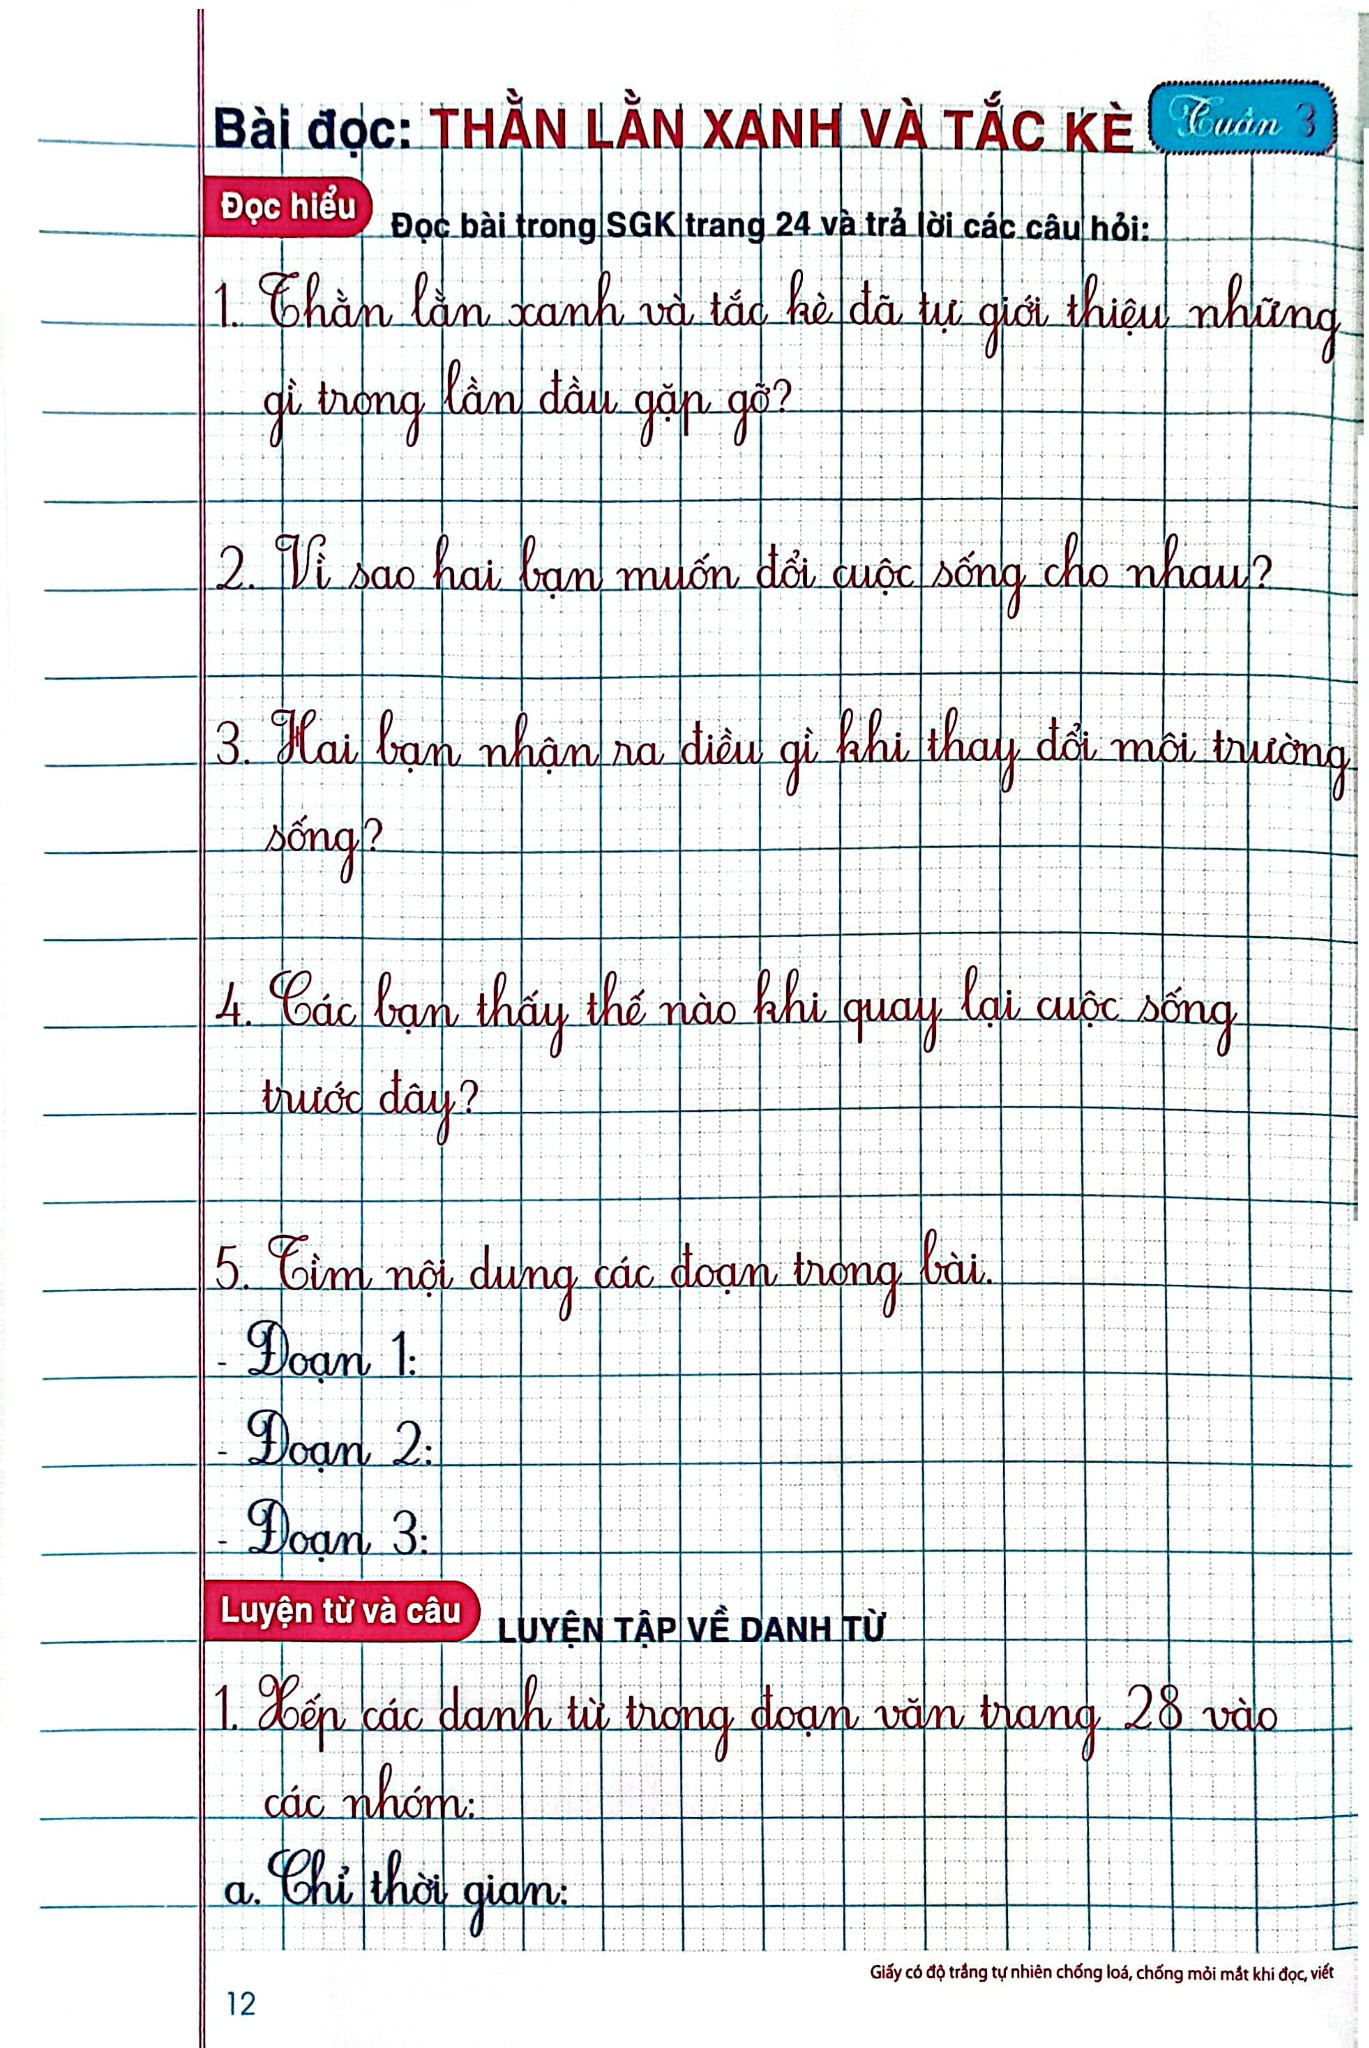 Bài đọc: THẰN LẰN XANH VÀ TẮC KÈ Tuần 3
Đọc hiểu Đọc bài trong SGK trang 24 và trả lời các câu hỏi:
1. Thằn lằn xanh và tắc kè đã tự giới thiệu những
gì trong lần đầu gặp gỡ?
2. Vì sao hai bạn muốn đổi cuộc sống cho nhau?
3. Hai bạn nhận ra điều gì khi thay đổi môi trường
sống?
4. Các bạn thấy thế nào khi quay lại cuộc sống
trước đây?
5. Tìm nội dung các đoạn trong bài.
- Đoạn 1:
- Đoạn 2:
- Đoạn 3:
Luyện từ và câu LUYỆN TẬP VỀ DANH TỪ
1. Xếp các danh từ trong đoạn văn trang 28 vào
các nhóm:
a. Chỉ thời gian:
Giấy có độ trắng tự nhiên chống loá, chống mỏi mắt khi đọc, viết
12